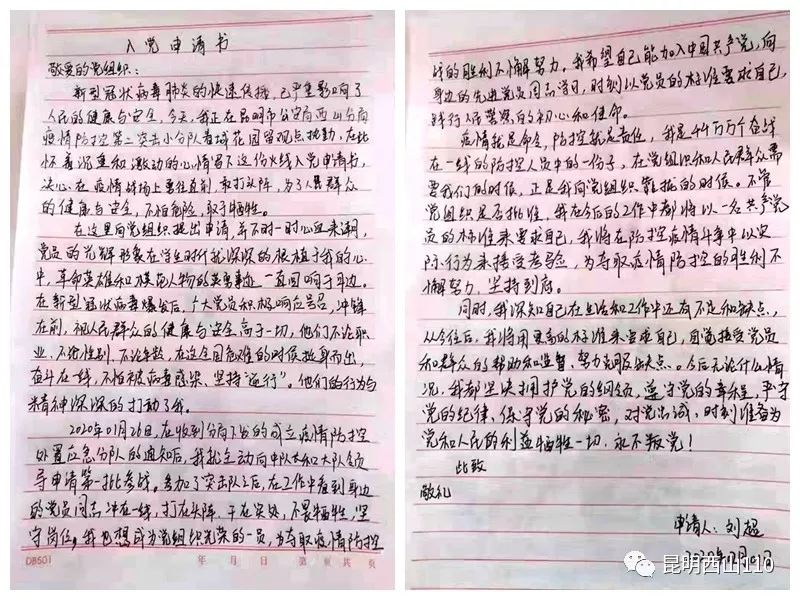 入党申请书
敬爱的党组织：
新型冠状病毒肺炎的快速传播，已严重影响了
人民的健康与安全，今天，我正在昆明市公安局西山分局
疫情防控第二突击小分队春城花园留观点执勤，在此
怀着沉重和激动的心情写下这份火线入党申请书，
决心在疫情战场上勇往直前、敢打头阵，为了人民群众
的健康与安全，不怕危险，敢于牺牲。
在这里向党组织提出申请，并不时一时心血来潮，
党员的光辉形象在学生时代就深深的根植于我的心
中，革命英雄和模范人物的英勇事迹一直回响于耳边。
在新型冠状病毒爆发后，广大党员积极响应号召，冲锋
在前，视人民群众的健康与安全高于一切，他们不论职
业、不论性别、不论年龄，在这全国危难的时候挺身而出，
奋斗在一线，不怕被病毒感染、坚持“逆行”。他们的行为与
精神深深的打动了我。
2020年01月26日，在收到分局下发的成立疫情防控
处置应急分队的通知后，我就主动向中队长和大队领
导申请第一批参战。参加了突击队之后，在工作中看到身边
的党员同志冲在一线，打在头阵，干在实处，不畏牺牲，坚
守岗位，我也想成为党组织光荣的一员，为夺取疫情防控
DB501 年 月 日 第 页 共 页
战的胜利不懈努力，我希望自己能加入中国共产党，向
身边的先进党员同志学习，时刻以党员的标准要求自己，
践行人民警察的初心和使命。
疫情就是命令，防控就是责任，我是千千万万个奋战
在一线的防控人员中的一份子，在党组织和人民群众需
要我们的时候，正是我向党组织靠拢的时候。不管
党组织是否批准，我在今后的工作中都将以一名共产党
员的标准来要求自己，我将在防控疫情斗争中以实
际行为来接受考验，为夺取疫情防控的胜利不
懈努力，坚持到底。
同时，我深知自己在生活和工作中还有不足和缺点，
从今往后，我将用更高的标准来要求自己，自觉接受党员
和群众的帮助和监督、努力克服缺点。今后无论什么情
况，我都坚决拥护党的纲领，遵守党的章程，严守
党的纪律，保守党的秘密，对党忠诚，时刻准备为
党和人民的利益牺牲一切，永不叛党！
此致
敬礼
申请人：刘超
昆明西山110